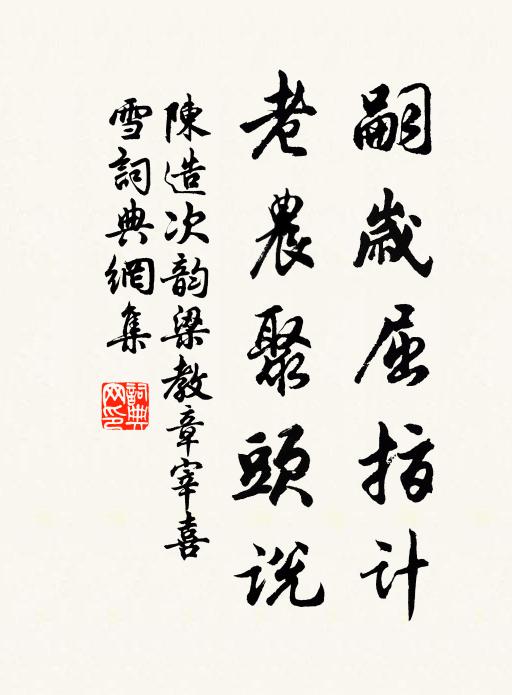 嗣歲屈指計
老農聚頭說
陳造次韵梁教章宰喜
雪詞典網集
詞典網印